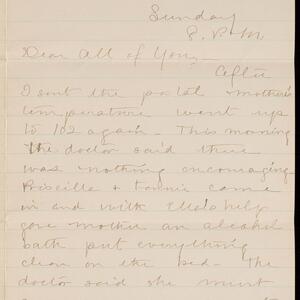 Sunday
8. P. M
Dear All of You,
After
I sent the postal mother's
temperature went up
to 102 again. This morning
the doctor said there
was nothing encouraging
Priscilla & Fannie came
in and with Ella's help
gave mother an alcohol
bath put everything
clean on the bed - the
doctor said she must